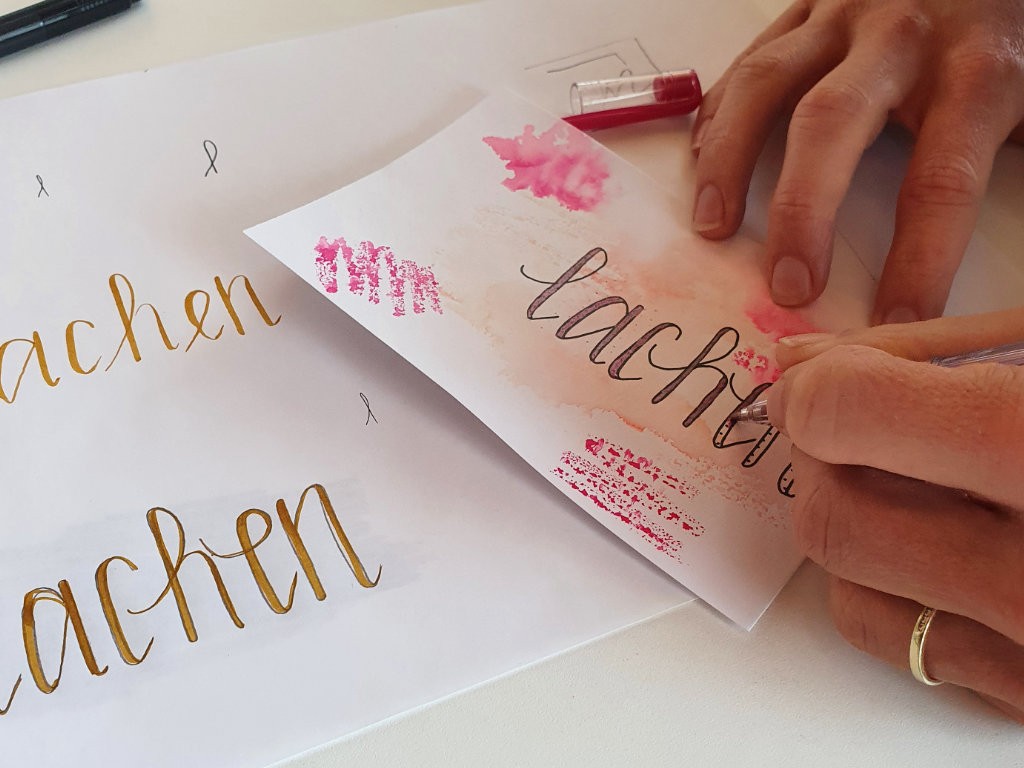 l l
achen
l
achen
lachen